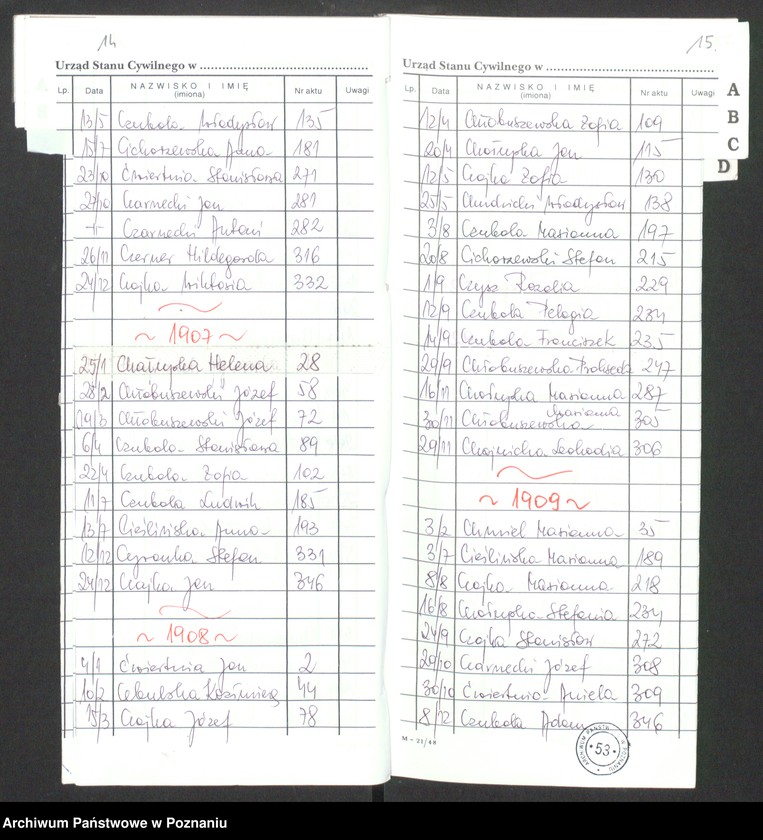 14
Urząd Stanu Cywilnego w
Lp. Data NAZWISKO I IMIĘ (imiona) Nr aktu Uwagi
13/5 Cenkola Władysław 135
15/7 Cichoszewska Anna 181
23/10 Ćwiertnia Stanisława 271
27/10 Czarnecki Jan 281
-"- Czarnecki Antoni 282
26/11 Czerner Hildegarda 316
24/12 Czajka Wiktoria 332
~ 1907 ~
25/1 Chałupska Helena 28
28/2 Chłobuszewski Józef 58
19/3 Chłobuszewski Józef 72
6/4 Cenkola Stanisława 89
22/4 Cenkola Zofia 102
11/7 Cenkola Ludwik 185
13/7 Cieślińska Anna 193
12/12 Cyronka Stefan 331
24/12 Czajka Jan 346
~ 1908 ~
4/1 Ćwiertnia Jan 2
10/2 Kazimierz 44
15/3 Czajka Józef 78
15.
Urząd Stanu Cywilnego w
Lp. Data NAZWISKO I IMIĘ (imiona) Nr aktu Uwagi
12/4 Chłobuszewska Zofia 109
20/4 Chałupska Jan 115
12/5 Czajka Zofia 130
25/5 Władysław 138
3/8 Cenkola Marianna 197
20/8 Cichoszewski Stefan 215
1/9 Czysz Rozalia 229
12/9 Cenkola Pelagia 234
14/9 Cenkola Franciszek 235
29/9 Chłobuszewska Prakseda 247
16/11 Chałupska Marianna 287
30/11 Chłobuszewska Marianna 305
29/11 Chojnicka Leokadia 306
~ 1909 ~
3/2 Chmiel Marianna 35
3/7 Cieślińska Marianna 189
8/8 Czajka Marianna 218
16/8 Chałupska Stefania 234
24/9 Czajka Stanisław 272
29/10 Czarnecki Józef 308
30/10 Ćwiertnia Aniela 309
8/12 Cenkola Adam 346
M – 21/48
A
B
C
D
ARCHIWUM PAŃSTW. W POZNANIU
53
Archiwum Państwowe w Poznaniu